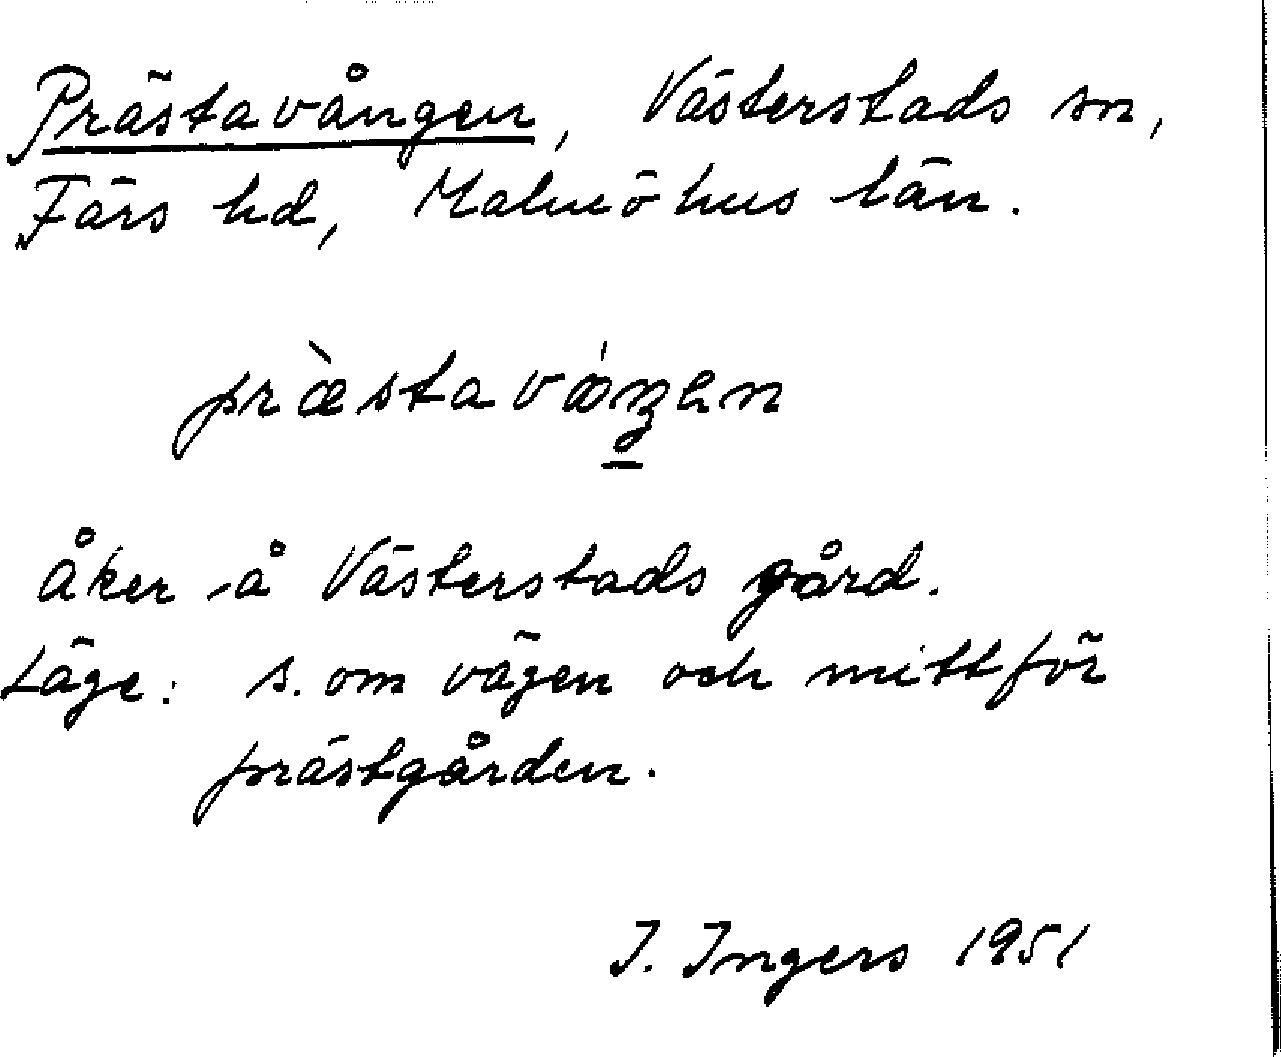 Prästavången, Västerstads sn,
Färs hd, Malmöhus län.
åker å Västerstads gård.
Läge: s. om vägen och mittför
prästgården.
I. Ingers 1951